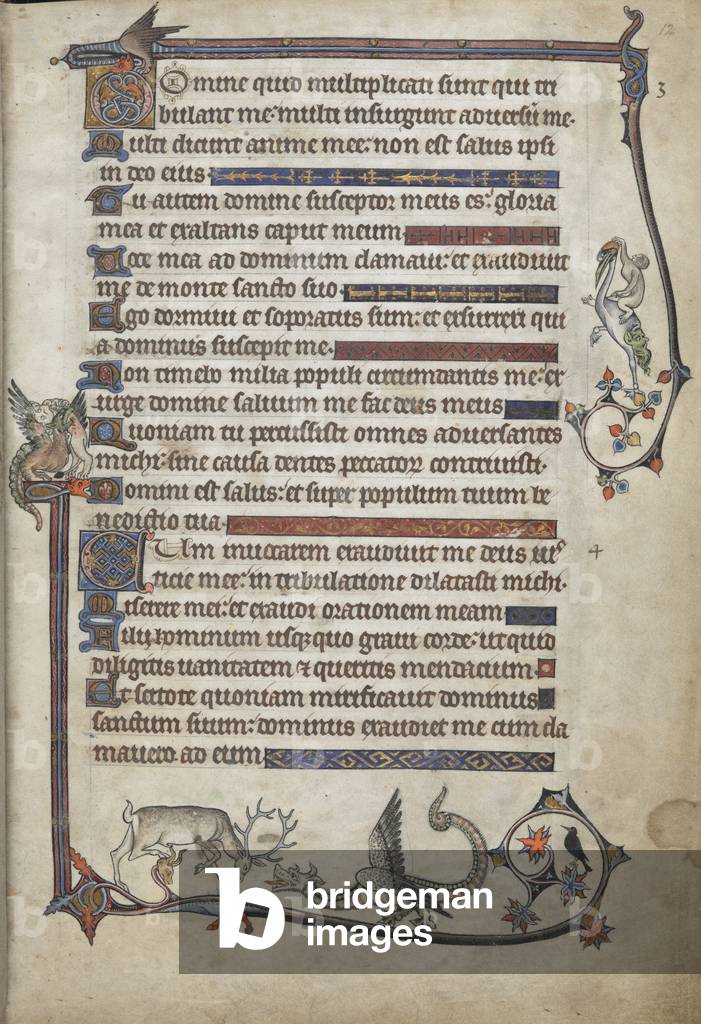 12
3
Domine quid multiplicati sunt qui tri
bulant me: multi insurgunt adversũ me.
Multi dicunt anime mee: non est salus ipsi
in deo eius
Tu autem domine susceptor meus es: gloria
mea et exaltans caput meum
Voce mea ad dominum clamavi: et exaudivit
me de monte sancto suo
Ego dormivi et soporatus sum: et exsurrexi qui
a dominus suscepit me.
Non timebo milia populi circumdantis me: ex
urge domine salvum me fac deus meus
Quoniam tu percussisti omnes adversantes
michi sine causa dentes peccatoꝝ contrivisti.
Domini est salus: et super populum tuum be
nedictio tua
4
Cum invocarem exaudivit me deus ius
ticie mee: in tribulatione dilatasti michi.
Miserere mei: et exaudi orationem meam
Filii hominum usquequo gravi corde: ut quid
diligitis vanitatem ⁊ queritis mendacium
Et scitote quoniam mirificavit dominus
sanctum suum: dominus exaudiet me cum cla
mavero ad eum
b bridgeman
images